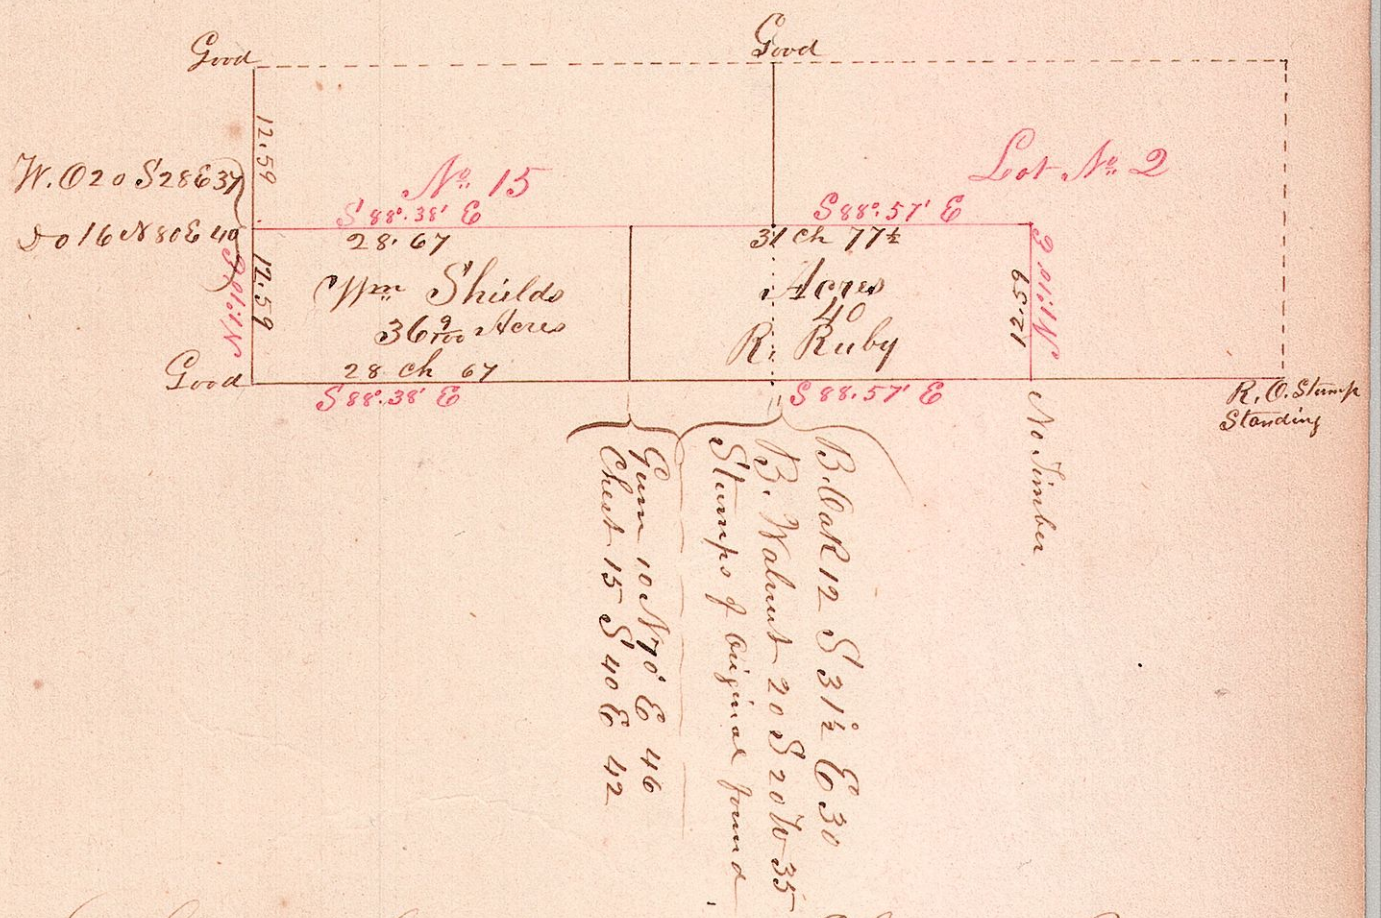 Good
Good
12.59
W. O 20 S28E 37
Do 16 N80E 40
No. 15
Lot No. 2
S 88°.38' E
S 88°.57' E
28.67
31 Ch 77½
12.59
Wm Shields
36 9/100 Acres
28 Ch 67
Acres
40
R. Ruby
12.59
Good
S 88°.38' E
S 88.57' E
R. O. Stump
Standing
No Timber
B. Oak 12 S 31½ E 30
B. Walnut 20 S 20 W 35
Stumps of Original found
Gum 10 N 70° E 46
Chest 15 S 40 E 42